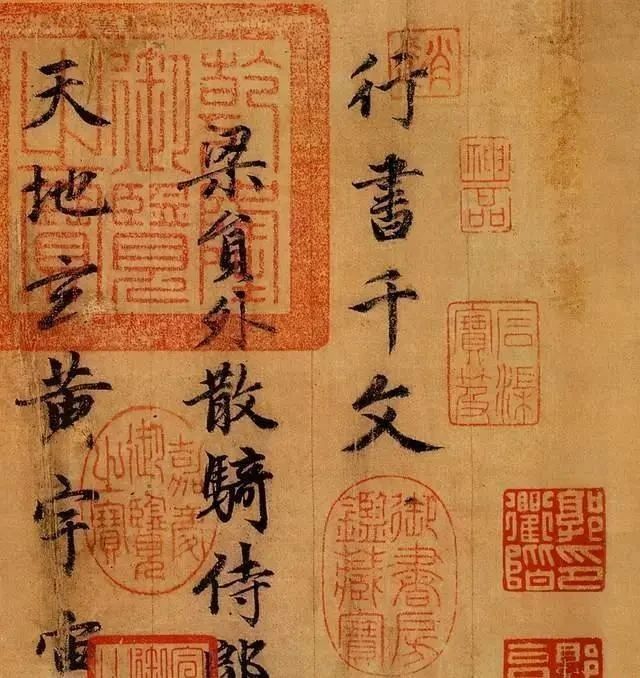 神品
石渠寶笈
行書千文
御書房鑑藏寶
梁貟外散騎侍郎
乾隆御覽之寶
嘉慶御覽之寶
天地玄黄宇宙